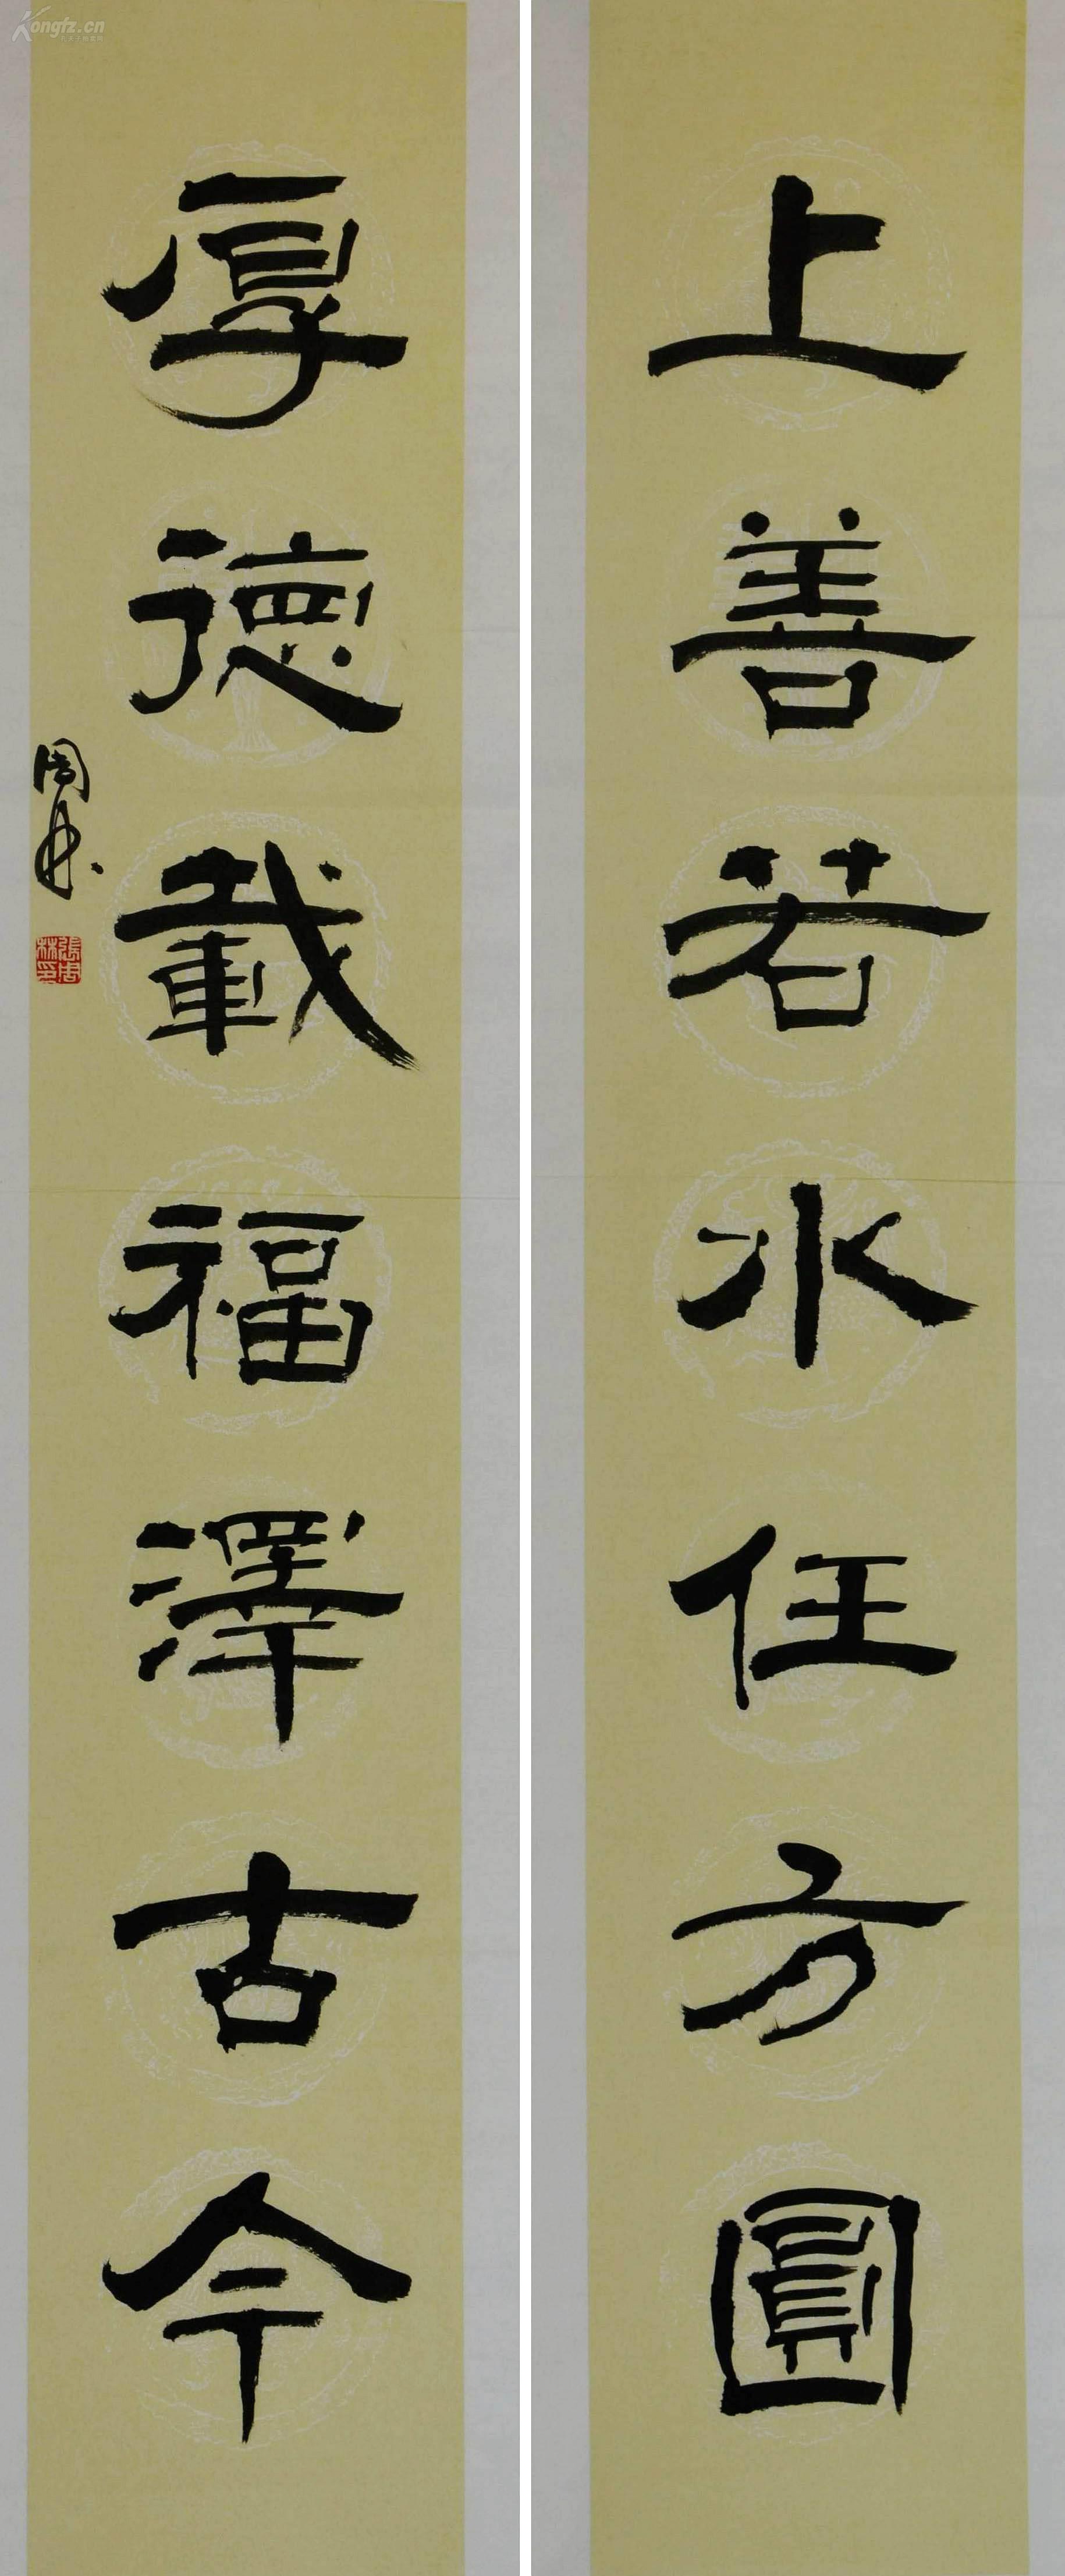 上善若水任方圓
厚德載福澤古今
周林
張周林印
Kongfz.cn